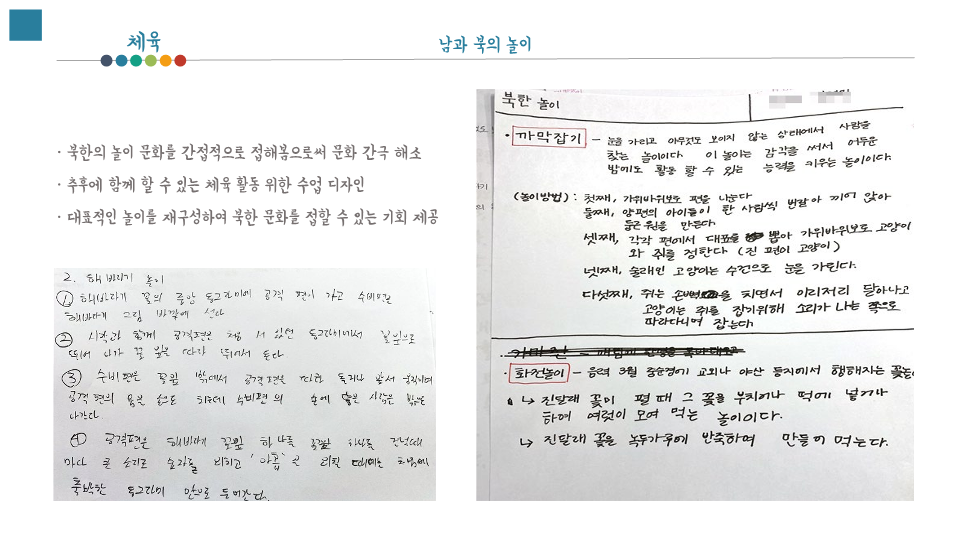 체육
남과 북의 놀이
· 북한의 놀이 문화를 간접적으로 접해봄으로써 문화 간극 해소
· 추후에 함께 할 수 있는 체육 활동 위한 수업 디자인
· 대표적인 놀이를 재구성하여 북한 문화를 접할 수 있는 기회 제공
2. 해바라기 놀이
① 해바라기 꽃의 중앙 동그라미에 공격 편이 가고 수비편은
해바라기 그림 바깥에 선다
② 시작과 함께 공격편은 처음 서 있던 동그라미에서 꽃잎으로
뛰어 나가 꽃 잎을 따라 뛰어서 돈다
③ 수비편은 꽃잎 밖에서 공격편을
공격편의 몸은 수비편의 손에 닿은 사람은 밖으로
나간다.
④ 공격편은 해바라기 꽃잎 하나를
마다 큰 소리로 숫자를 외치고 '아홉' 을 외칠 때에는 처음에
출발한 동그라미 안으로 들어간다.
북한 놀이
· 까막잡기 – 눈을 가리고 아무것도 보이지 않는 상태에서 사람을
찾는 놀이이다. 이 놀이는 감각을 써서 어두운
밤에도 활동 할 수 있는 능력을 키우는 놀이이다.
(놀이방법) : 첫째, 가위바위보로 편을 나눈다
둘째, 양편의 아이들이 한 사람씩 번갈아 끼어 앉아
둥근원을 만든다.
셋째, 각각 편에서 대표를 뽑아 가위바위보로 고양이
와 쥐를 정한다 (진 편이 고양이)
넷째, 술래인 고양이는 수건으로 눈을 가린다.
다섯째, 쥐는 손뼉을 치면서 이리저리 달아나고
고양이는 쥐를 잡기위해 소리가 나는 쪽으로
따라다니며 잡는다.
· 화전놀이 – 음력 3월 중순경에 교외나 야산 등지에서 행해지는 꽃놀이
↳ 진달래 꽃이 필 때 그 꽃을 부치거나 떡에 넣거나
하여 여럿이 모여 먹는 놀이이다.
↳ 진달래 꽃을 녹두가루에 반죽하여 만들어 먹는다.